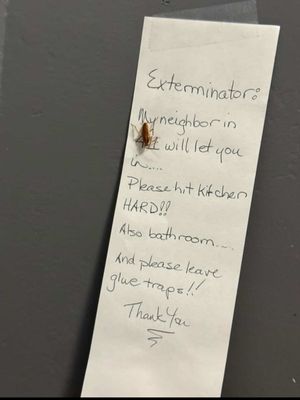 Exterminator:
My neighbor in
will let you
in....
Please hit kitchen
HARD!!
Also bathroom....
And please leave
glue traps!!
Thank You